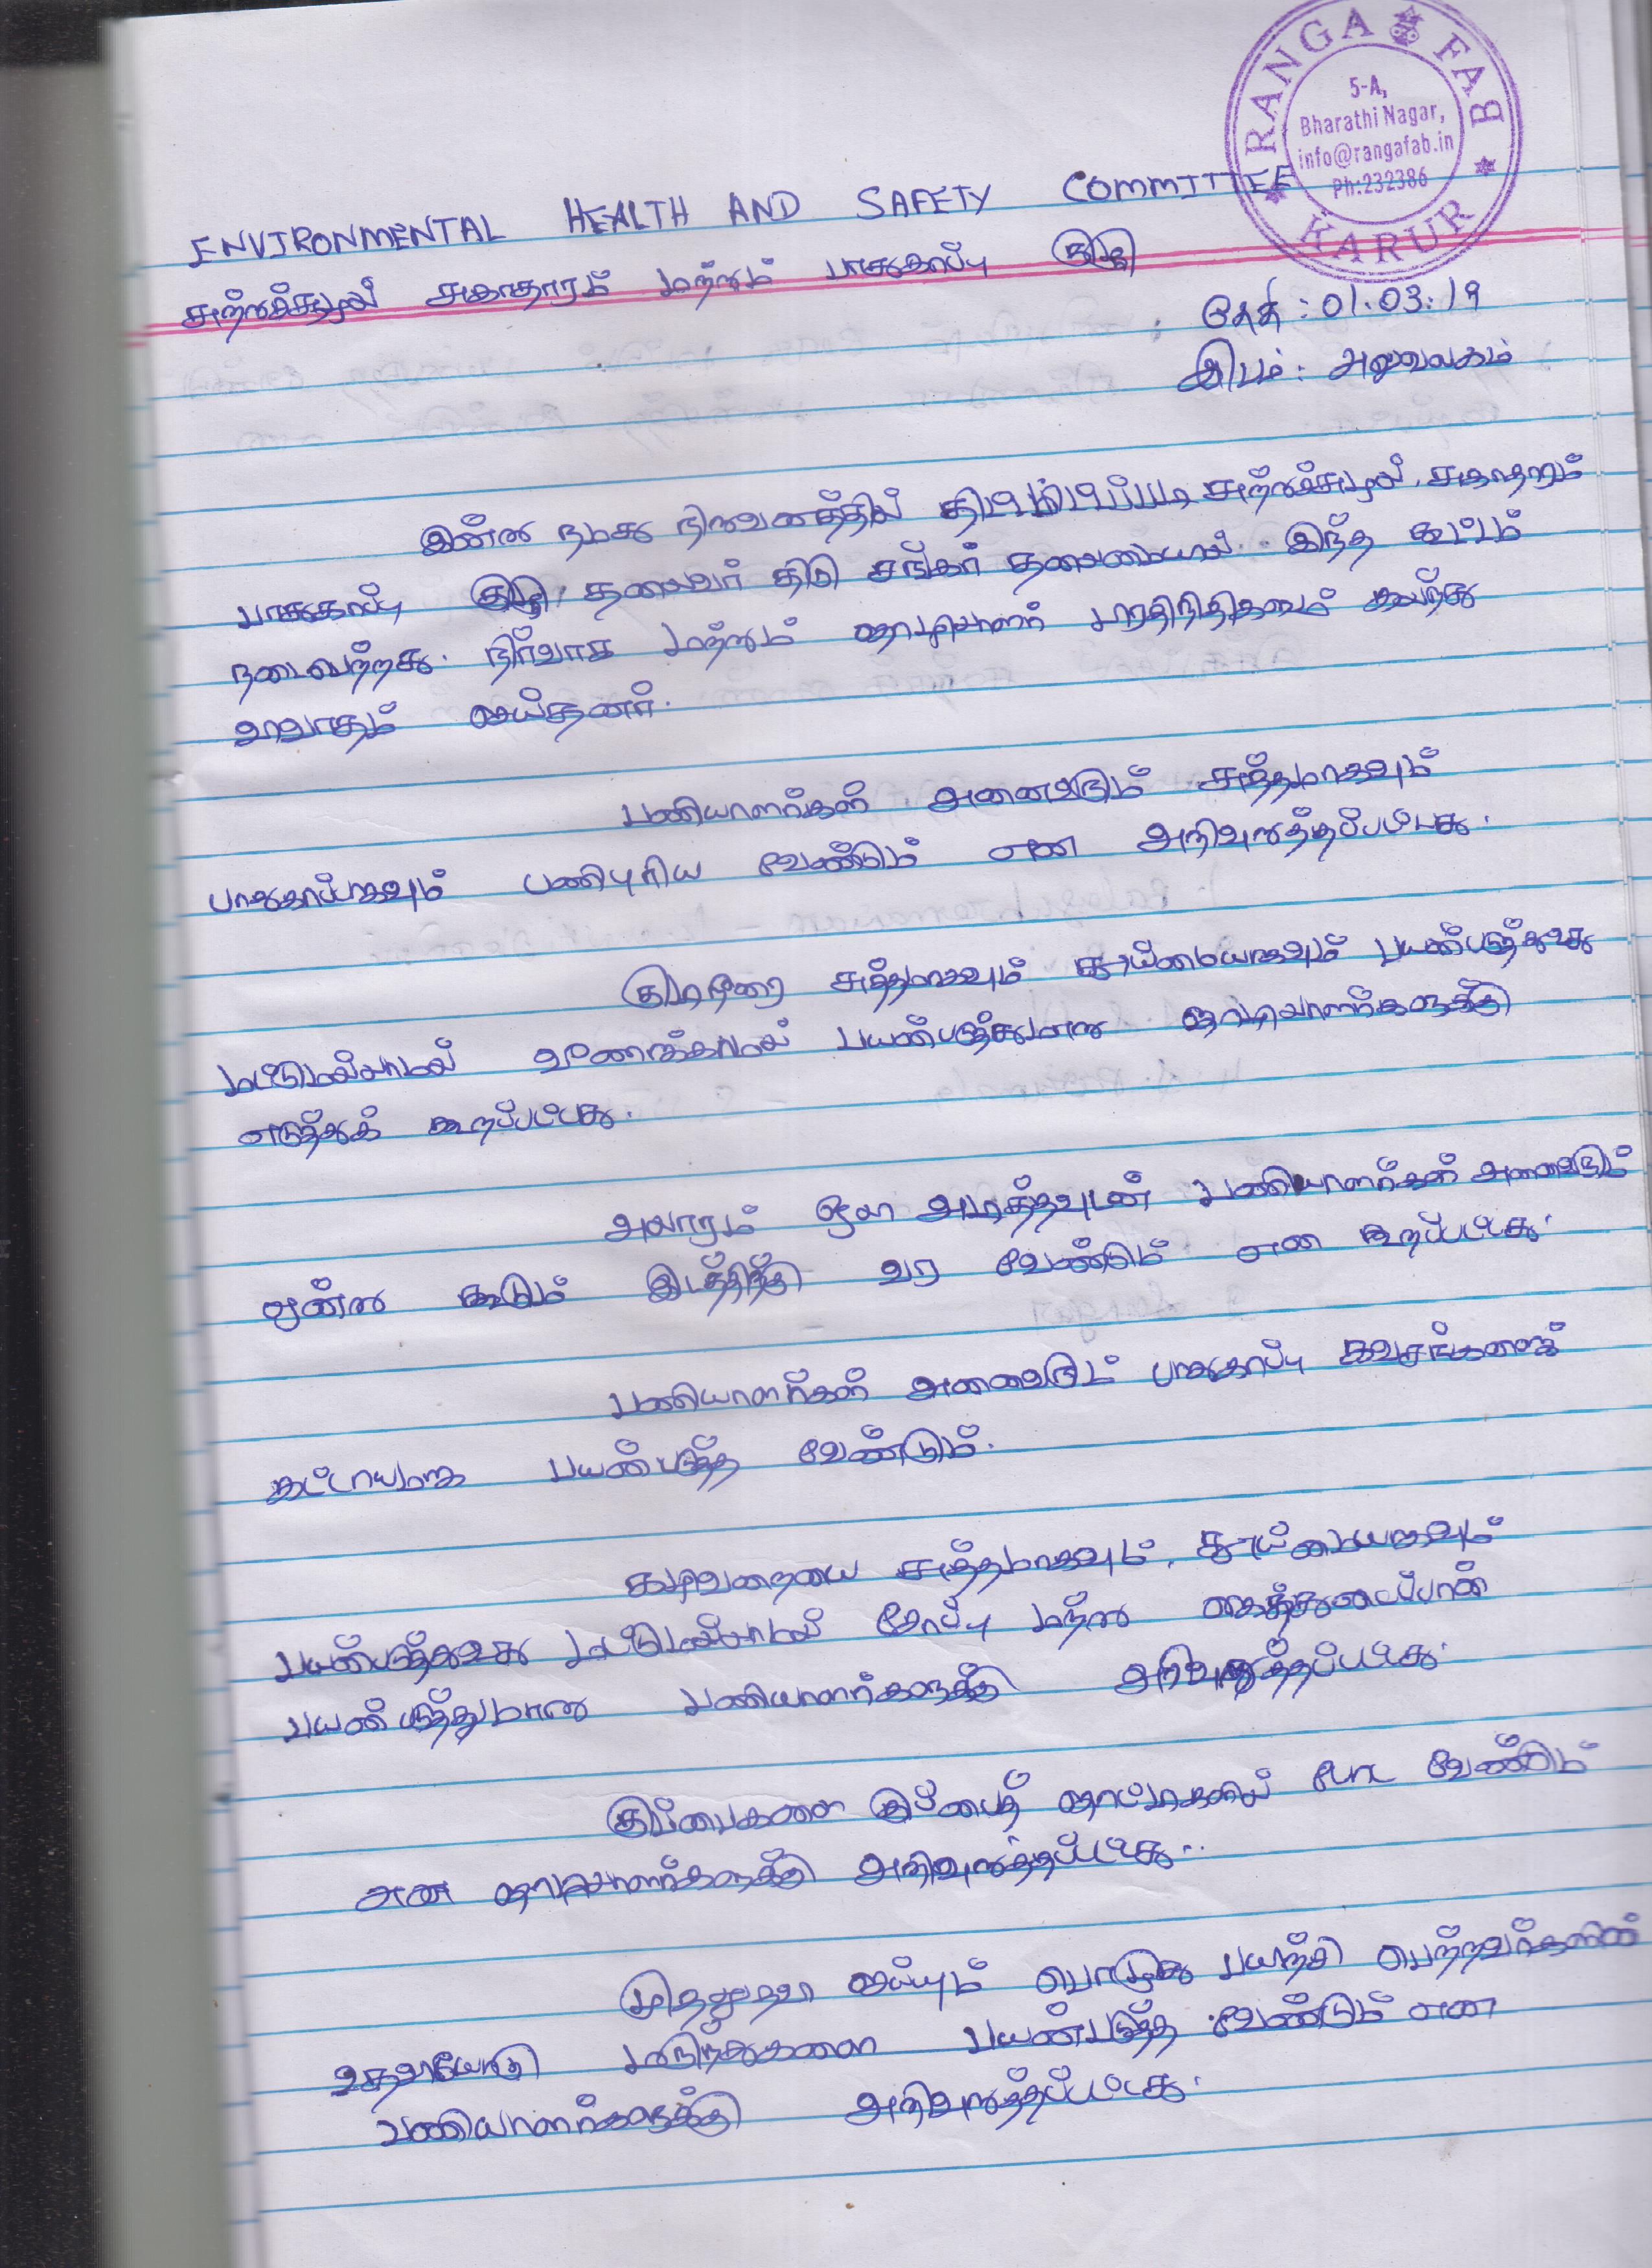 RANGA FAB
5-A,
Bharathi Nagar,
info@rangafab.in
Ph:232386
KARUR
ENVIRONMENTAL HEALTH AND SAFETY COMMITTEE
சுற்றுச்சூழல் சுகாதாரம் மற்றும் பாதுகாப்பு குழு
தேதி : 01.03.19
இடம் : அலுவலகம்
இன்று நமது நிறுவனத்தில் சுற்றுச்சூழல், சுகாதாரம்
பாதுகாப்பு குழு தலைவர் திரு சங்கர் தலைமையில் இந்த கூட்டம்
நடைபெற்றது. நிர்வாக மற்றும் தொழிலாளர் பிரதிநிதிகளும் கலந்து
விவாதம் செய்தனர்.
பணியாளர்கள் அனைவரும் சுத்தமாகவும்
பாதுகாப்பாகவும் பணிபுரிய வேண்டும் என அறிவுறுத்தப்பட்டது.
குடிநீரை சுத்தமாகவும் தூய்மையாகவும் பயன்படுத்துவது
மட்டுமில்லாமல் வீணாக்காமல் பயன்படுத்துமாறு தொழிலாளர்களுக்கு
எடுத்துக் கூறப்பட்டது.
அலாரம் ஒலி அடித்தவுடன் பணியாளர்கள் அனைவரும்
ஒன்று கூடும் இடத்திற்கு வர வேண்டும் என கூறப்பட்டது.
பணியாளர்கள் அனைவரும் பாதுகாப்பு கவசங்களைக்
கட்டாயமாக பயன்படுத்த வேண்டும்.
கழிவறையை சுத்தமாகவும், தூய்மையாகவும்
பயன்படுத்துவது மட்டுமில்லாமல் சோப்பு மற்று கைத்துடைப்பான்
பயன்படுத்துமாறு பணியாளர்களுக்கு அறிவுறுத்தப்பட்டது.
குப்பைகளை குப்பைத் தொட்டிகளில் போட வேண்டும்
என தொழிலாளர்களுக்கு அறிவுறுத்தப்பட்டது..
முதலுதவி செய்யும் பொழுது பயிற்சி பெற்றவர்களின்
உதவியோடு மருந்துகளை பயன்படுத்த வேண்டும் என
பணியாளர்களுக்கு அறிவுறுத்தப்பட்டது.